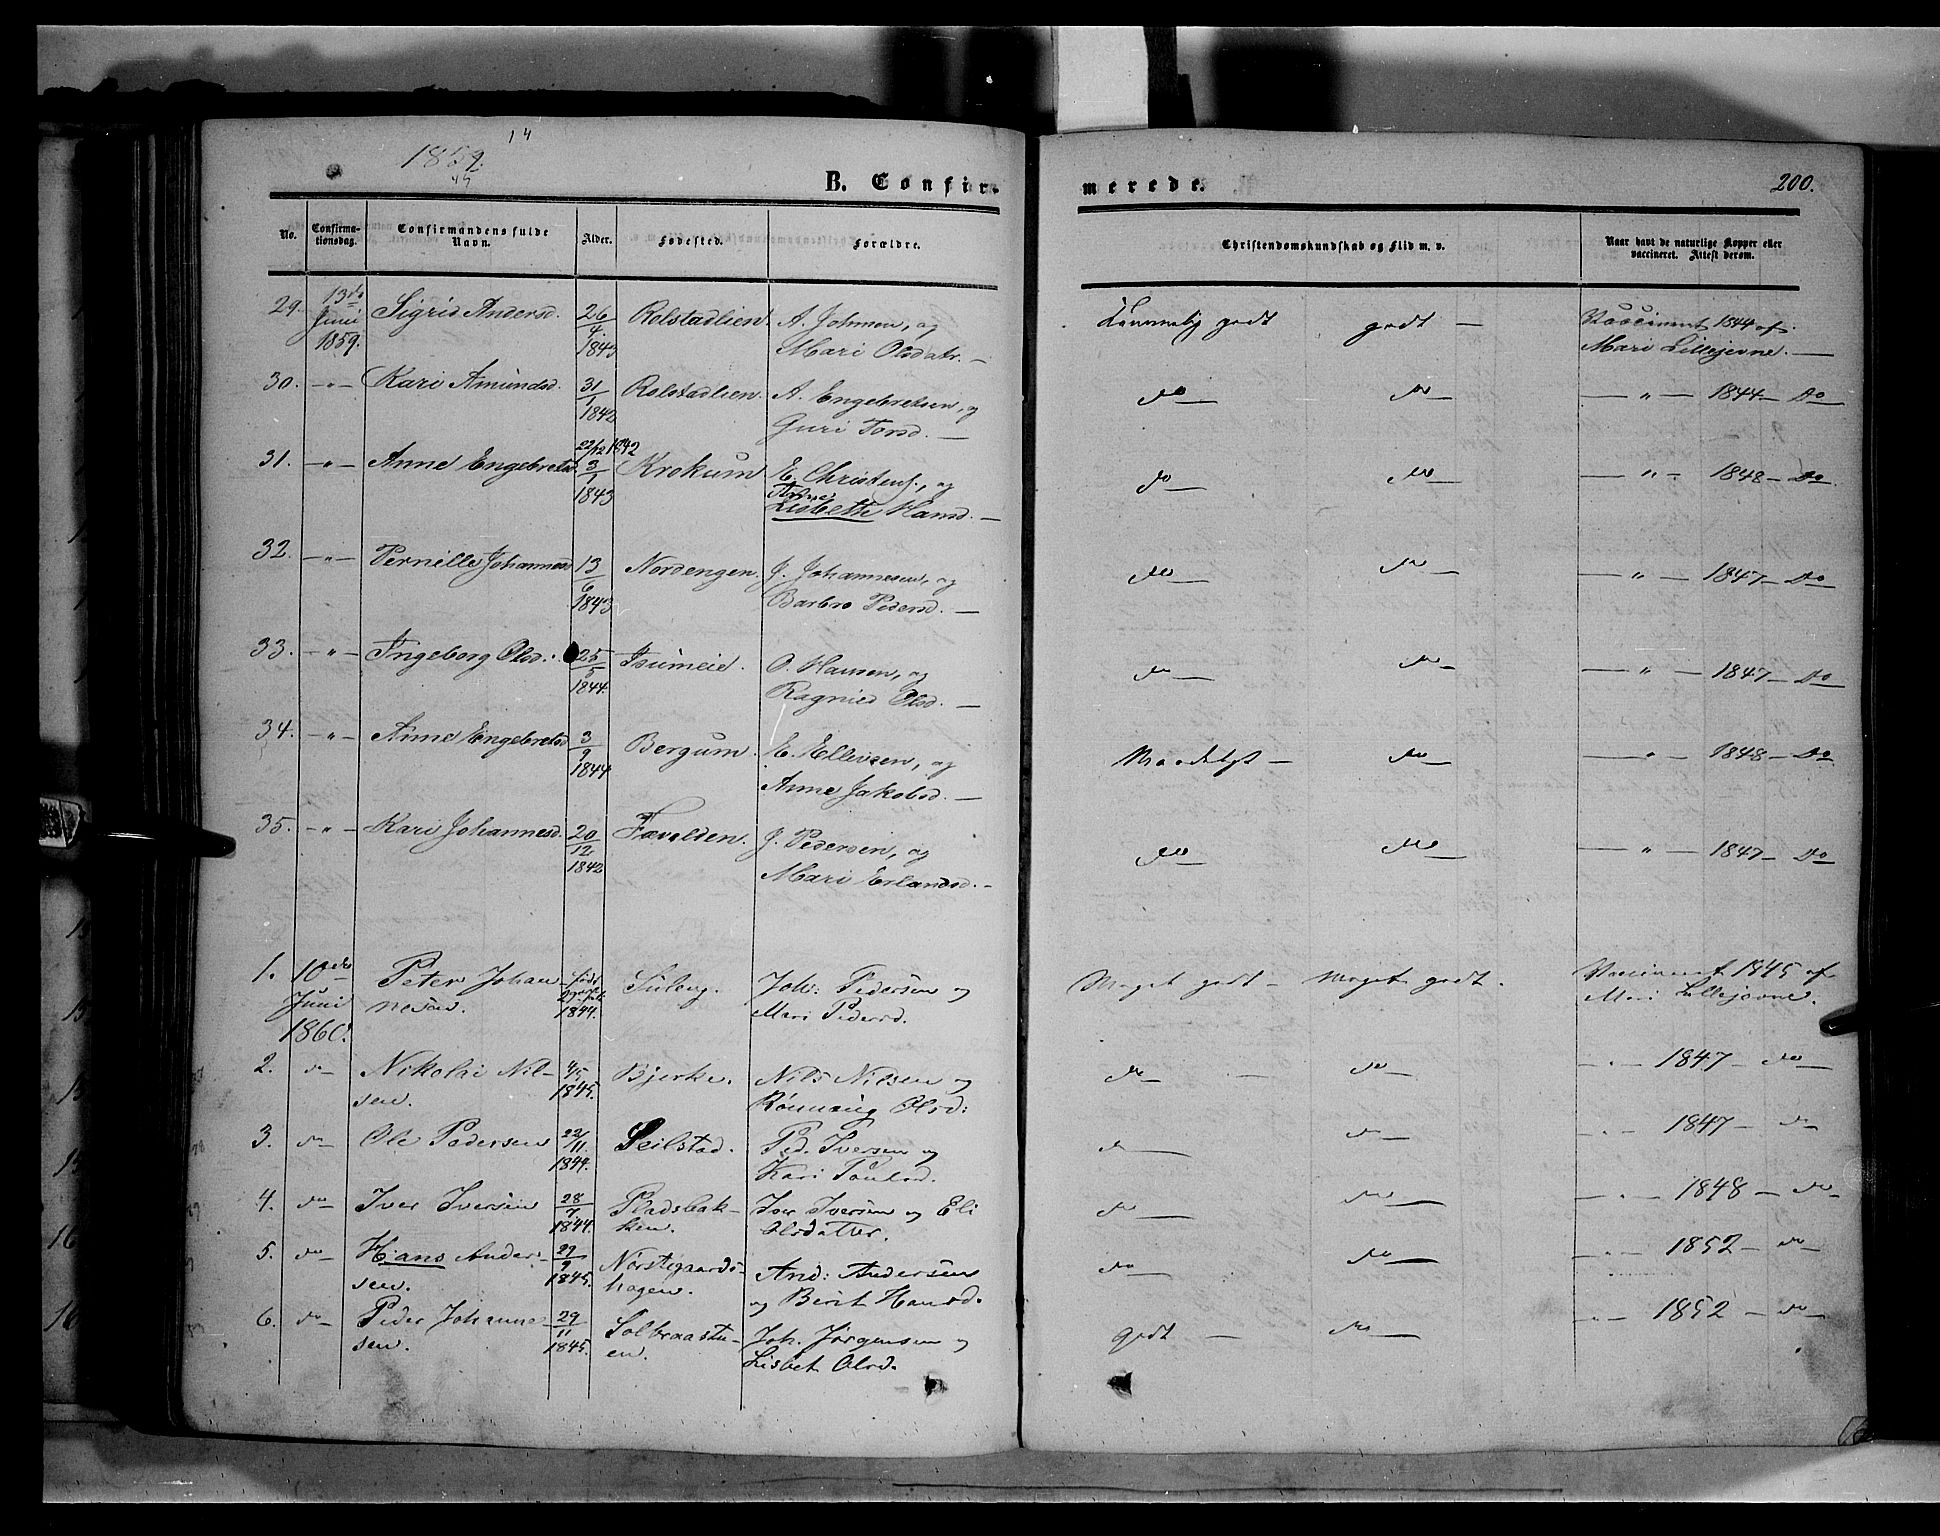 1859.
14
B. Confirmerede.
200.
No.
Confirmationsdag.
Confirmandens fulde Navn.
Alder.
Fødested.
Forældre.
Christendomskundskab og Flid m. v.
Naar havt de naturlige Kopper eller vaccineret. Attest derom.
29. 13de Juni 1859. Sigrid Andersd. 26/4 1843 Rolstadlien. A. Johnsen, og Mari Olsdatr. — Temmelig godt godt — Vaccineret 1844 af Mari Lillejevne. —
30. — " — Kari Amundsd. 31/1 1842 Rolstadlien. A. Engebretsen, og Guri Torsd. — do — do — — " — 1844 — Do
31. — " — Anne Engebretsd. 22/12 1842 3/1 1843 Krokum E. Christens., og Anne Lisbeth Hansd. — do — do — — " — 1848 — Do.
32. — " — Pernille Johannesd 13/6 1843 Nordengen. J. Johannesen, og Barbro Pedersd. — do — do — — " — 1847 — Do
33. — " — Ingeborg Olsd. 25/5 1844. Isumeie. O. Hansen, og Ragnild Olsd. — do — do — — " — 1847 — Do
34. — " — Anne Engebretsd 3/9 1844 Bergum. E. Ellevsen, og Anne Jakobsd. — Maadeligt — do — " — 1848 — Do
35. — " — Kari Johannesd. 20/12 1842 J. Pedersen, og Mari Erlandsd. — do — do — — " — 1847 — Do
1. 10de Juni 1860. Peter Johannesen. født 1844. Joh: Pedersen og Mari Pedersd. Meget godt — Meget godt. Vaccineret 1845 af Mari Lillejevne.
2. do — Nikolai Nilsen. 4/5 1845. Bjerke. Nils Nilsen og Rønnaug Olsd: do — do — " — 1847 — do
3. do — Ole Pedersen 22/11 1844. Seilstad. Ped. Iversen og Kari Poulsd. do — do — " — 1847 — do
4. do — Iver Iversen 28/7 1844. Pladsbakken. Iver Iversen og Eli Olsdatter. do — do — " — 1848 — do
5. do — Hans Andersen. 29/9 1845. Norstegaardshagen. And: Andersen og Berit Hansd. do — do — " — 1852 — do
6. do — Peder Johannesen. 29/11 1845. Solbraastuen. Joh. Jørgensen og Lisbet Olsd. godt — do — " — 1852 — do